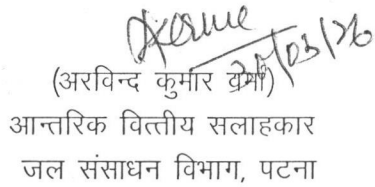 20/03/26
(अरविन्द कुमार वर्मा)
आन्तरिक वित्तीय सलाहकार
जल संसाधन विभाग, पटना